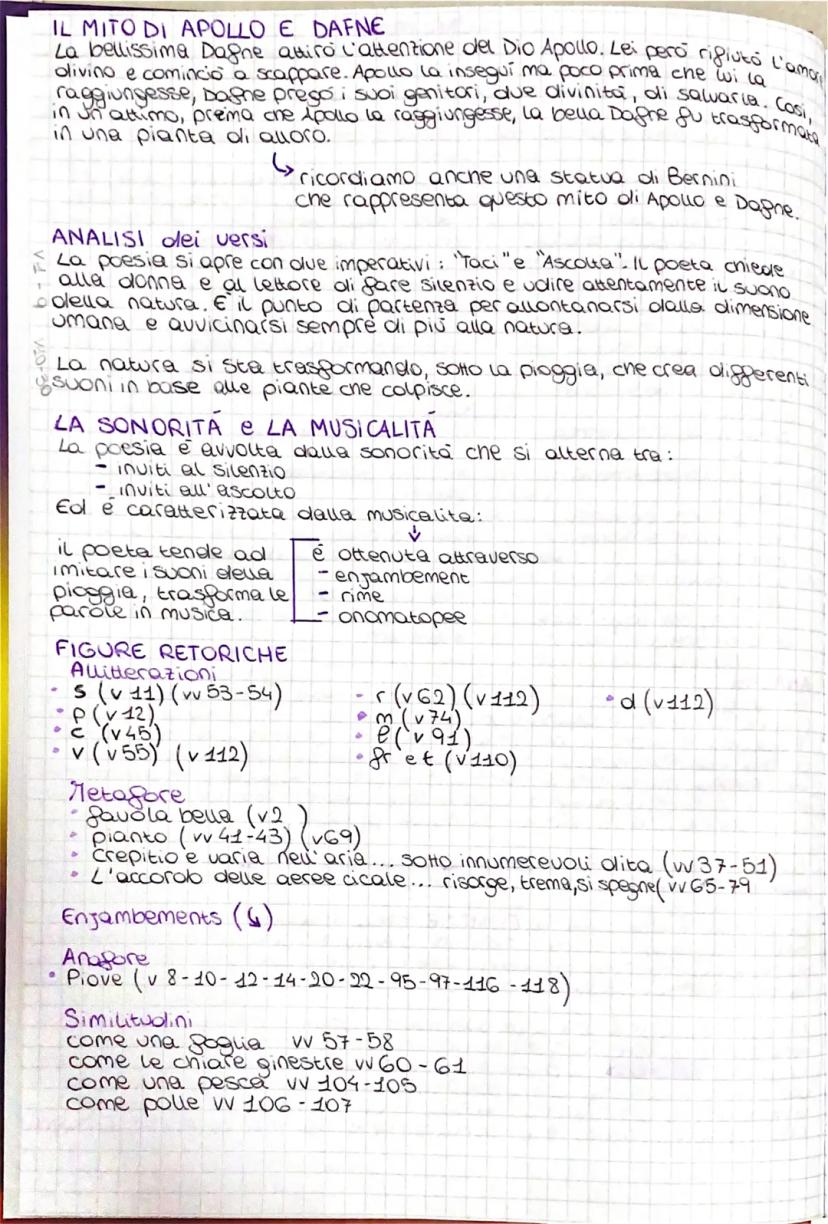 IL MITO DI APOLLO E DAFNE
La bellissima Dafne attirò l'attenzione del Dio Apollo. Lei però rifiutò l'amor
divino e cominciò a scappare. Apollo la inseguí ma poco prima che lui la
raggiungesse, Dafne pregò i suoi genitori, due divinità, di salvarla. Così,
in un attimo, prima che Apollo la raggiungesse, la bella Dafne fu trasformata
in una pianta di alloro.
↳ ricordiamo anche una statua di Bernini
che rappresenta questo mito di Apollo e Dafne.
ANALISI dei versi
La poesia si apre con due imperativi: "Taci" e "Ascolta". Il poeta chiede
alla donna e al lettore di fare silenzio e udire attentamente il suono
della natura. È il punto di partenza per allontanarsi dalla dimensione
umana e avvicinarsi sempre di più alla natura.
La natura si sta trasformando, sotto la pioggia, che crea differenti
suoni in base alle piante che colpisce.
LA SONORITÁ e LA MUSICALITÁ
La poesia è avvolta dalla sonorità che si alterna tra:
- inviti al silenzio
- inviti all'ascolto
Ed é caratterizzata dalla musicalita:
↓
il poeta tende ad
imitare i suoni della
pioggia, trasforma le
parole in musica.
é ottenuta attraverso
- enjambement
- rime
- onomatopee
FIGURE RETORICHE
Allitterazioni
• s (v 11) (vv 53-54)
• p (v 12)
• c (v45)
• v (v55) (v 112)
- r (v62) (v112)
• m (v74)
• l (v 91)
• fr e t (v110)
• d (v112)
Metafore
• favola bella (v2 )
• pianto (vv 41-43) (v69)
• crepitio e varia nell'aria... sotto innumerevoli dita (vv 37-51)
• L'accordo delle aeree cicale... risorge, trema, si spegne( vv 65-79
Enjambements (↳)
Anafore
• Piove (v 8-10-12-14-20-22-95-97-116-118)
Similitudini
come una foglia vv 57-58
come le chiare ginestre vv 60-61
come una pesca vv 104-105
come polle vv 106-107